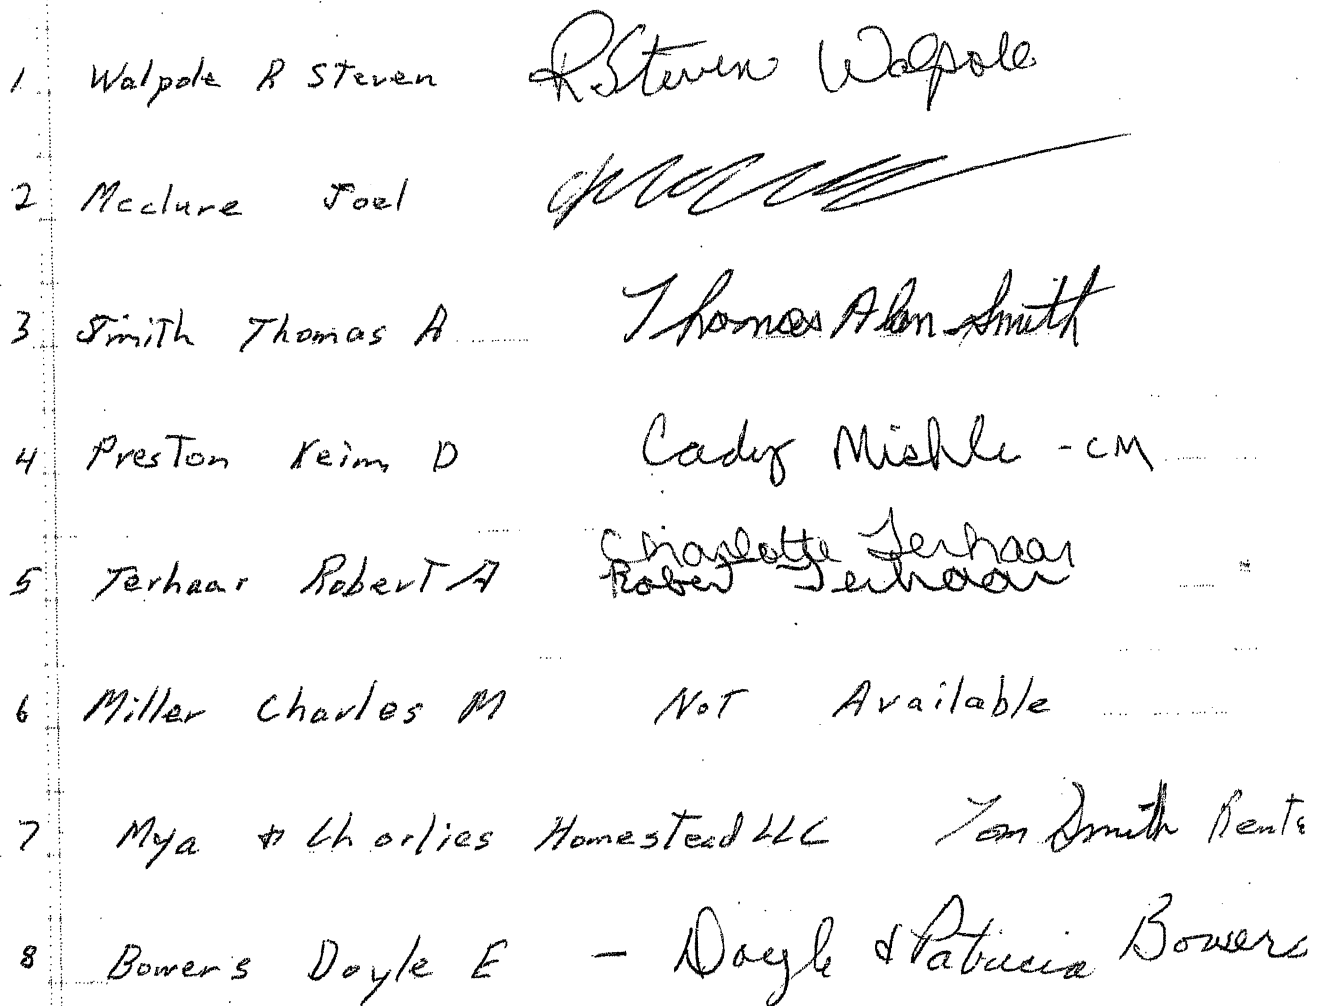 1 Walpole R Steven R Steven Walpole
2 Mcclure Joel
3 Smith Thomas A Thomas Alan Smith
4 Preston Keim D Cady Mishle - CM
Charlotte Terhaar
5 Terhaar Robert A Robert Terhaar
6 Miller Charles M Not Available
7 Mya & Charlies Homestead LLC Tom Smith
8 Bowers Doyle E - Doyle & Patricia Bowers